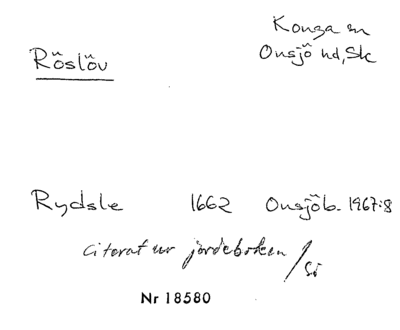 Röslöv
Konga sn
Onsjö hd, Sk
Rydsle 1662 Onsjöb. 1967:8
Citerat ur jordeboken /Sö
Nr 18580